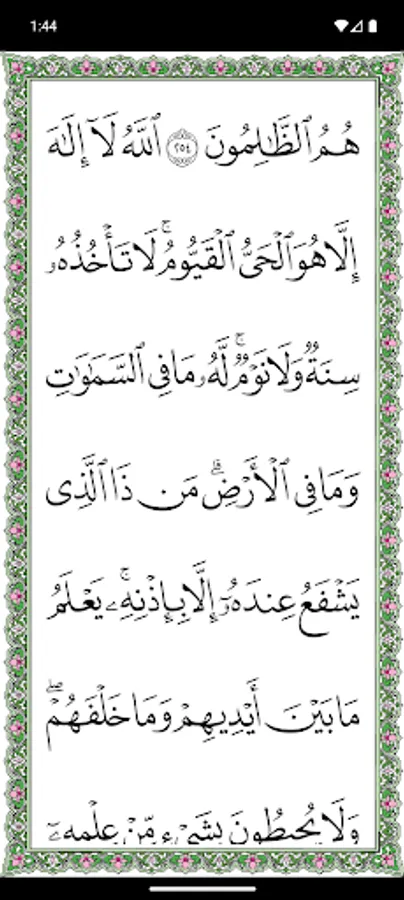 1:44
هُمُ ٱلظَّـٰلِمُونَ ٢٥٤ ٱللَّهُ لَآ إِلَـٰهَ
إِلَّا هُوَ ٱلْحَىُّ ٱلْقَيُّومُ ۚ لَا تَأْخُذُهُۥ
سِنَةٌۭ وَلَا نَوْمٌۭ ۚ لَّهُۥ مَا فِى ٱلسَّمَـٰوَٰتِ
وَمَا فِى ٱلْأَرْضِ ۗ مَن ذَا ٱلَّذِى
يَشْفَعُ عِندَهُۥٓ إِلَّا بِإِذْنِهِۦ ۚ يَعْلَمُ
مَا بَيْنَ أَيْدِيهِمْ وَمَا خَلْفَهُمْ ۖ
وَلَا يُحِيطُونَ بِشَىْءٍۢ مِّنْ عِلْمِهِۦٓ